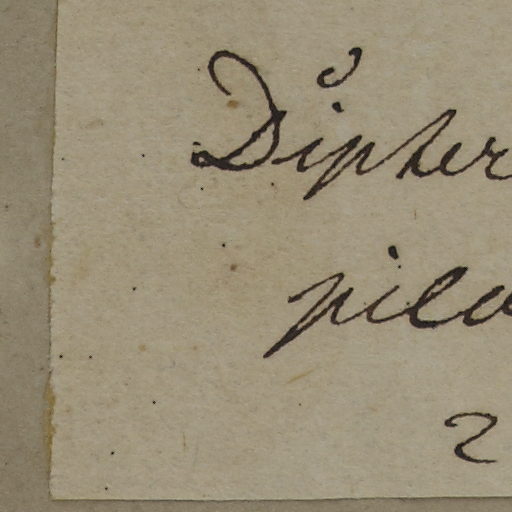 Dipter
pila
2